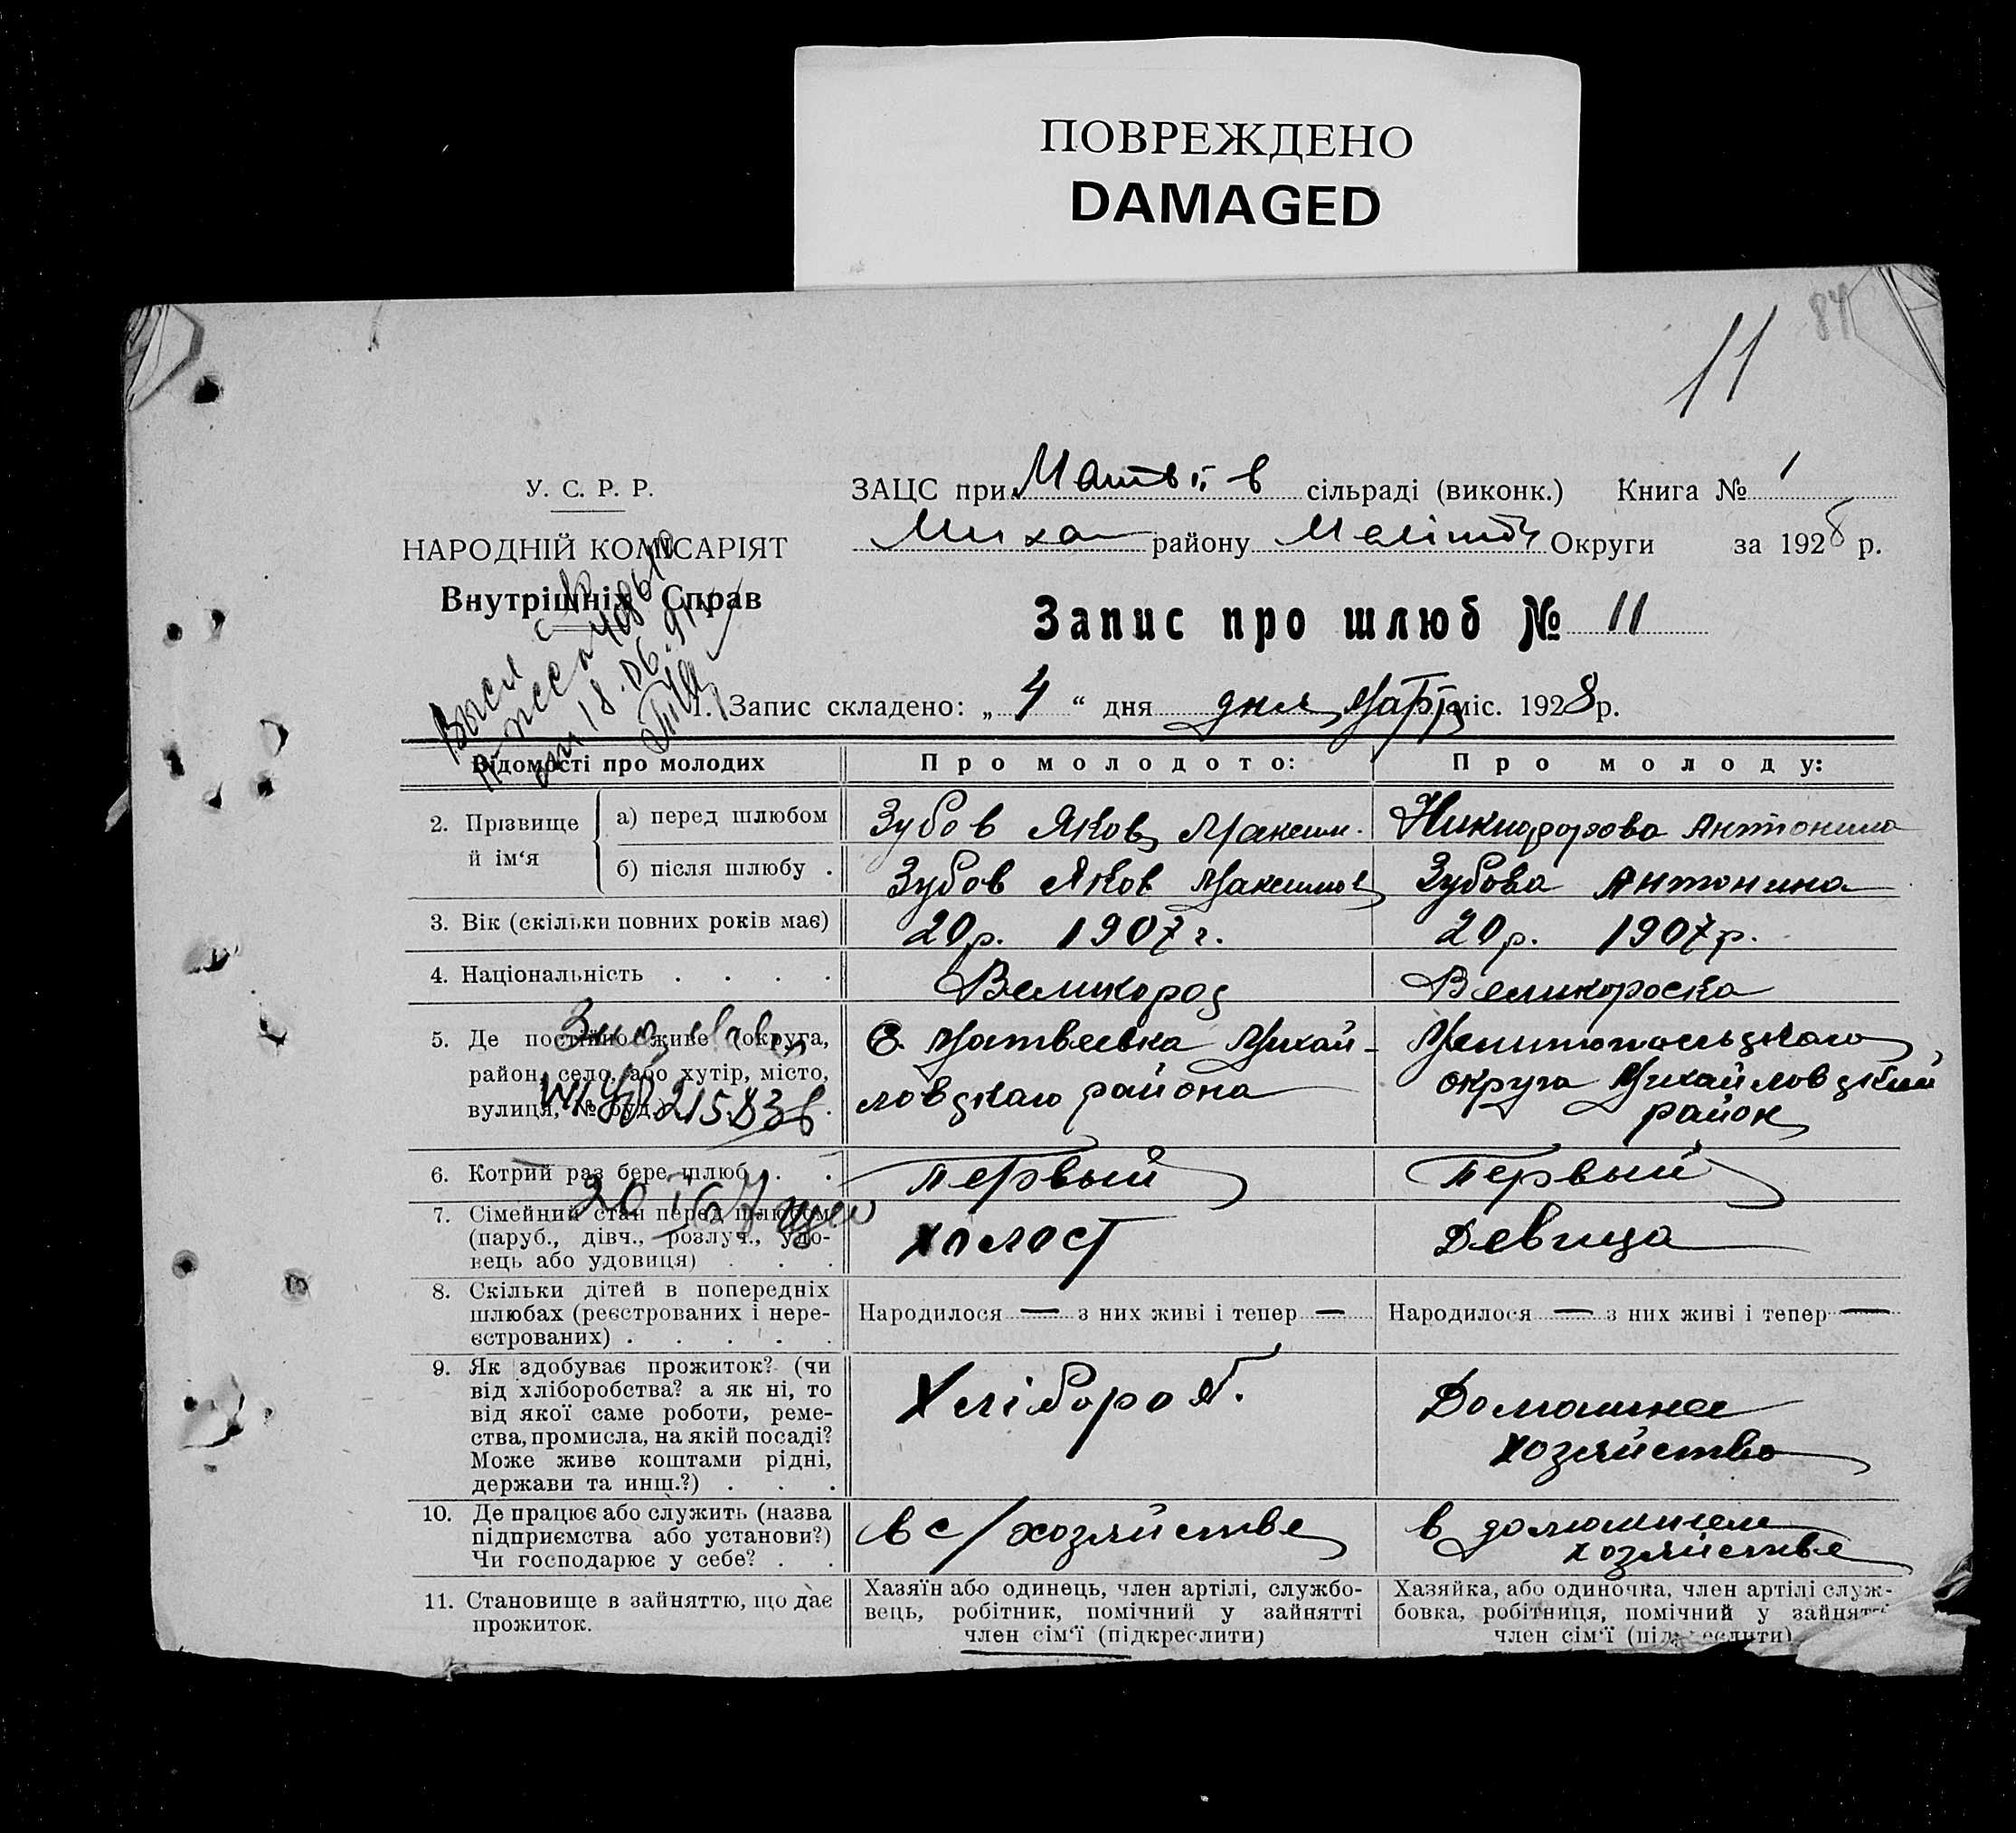 ПОВРЕЖДЕНО
DAMAGED
84
11
У. С. Р. Р.
НАРОДНІЙ КОМІСАРІЯТ
Внутрішніх Справ
ЗАЦС при Матвіїв сільраді (виконк.) Книга № 1
Миха району Меліт Округи за 1928 р.
Запис про шлюб № 11
1. Запис складено: „ 4 “ дня дня Мар міс. 1928 р.
18.06.91
Відомості про молодих
Про молодого:
Про молоду:
2. Прізвище й ім‘я
а) перед шлюбом
Зубов Яков Максим.
Никифорова Антонина
б) після шлюбу .
Зубов Яков Максимов
Зубова Антонина
3. Вік (скільки повних років має)
20 р. 1907 г.
20 р. 1907 р.
4. Національність . . . .
Великорос
Великороска
5. Де постійно живе (округа,
район, село, або хутір, місто,
вулиця, № буд.
215836
С. Матвеевка Михай-
ловскаго района
Мелитопольскаго
округа Михайловский
район
6. Котрий раз бере шлюб . .
Первый
Первый
7. Сімейний стан перед шлюбом
(паруб., дівч., розлуч., удо-
вець або удовиця) . . .
холост
Девица
8. Скільки дітей в попередніх
шлюбах (реєстрованих і нере-
єстрованих) . . . . .
Народилося — з них живі і тепер —
Народилося — з них живі і тепер —
9. Як здобуває прожиток? (чи
від хліборобства? а як ні, то
від якої саме роботи, реме-
ства, промисла, на якій посаді?
Може живе коштами рідні,
держави та инш.?) . . .
Хлібороб.
Домашнее
хозяйство
10. Де працює або служить (назва
підприємства або установи?)
Чи господарює у себе? . .
в с/хозяйстве
в домашнем
хозяйстве
11. Становище в зайняттю, що дає
прожиток.
Хазяїн або одинець, член артілі, службо-
вець, робітник, помічний у зайнятті
член сім‘ї (підкреслити)
Хазяйка, або одиночка, член артілі служ-
бовка, робітниця, помічний у зайнятті
член сім‘ї (підкреслити)